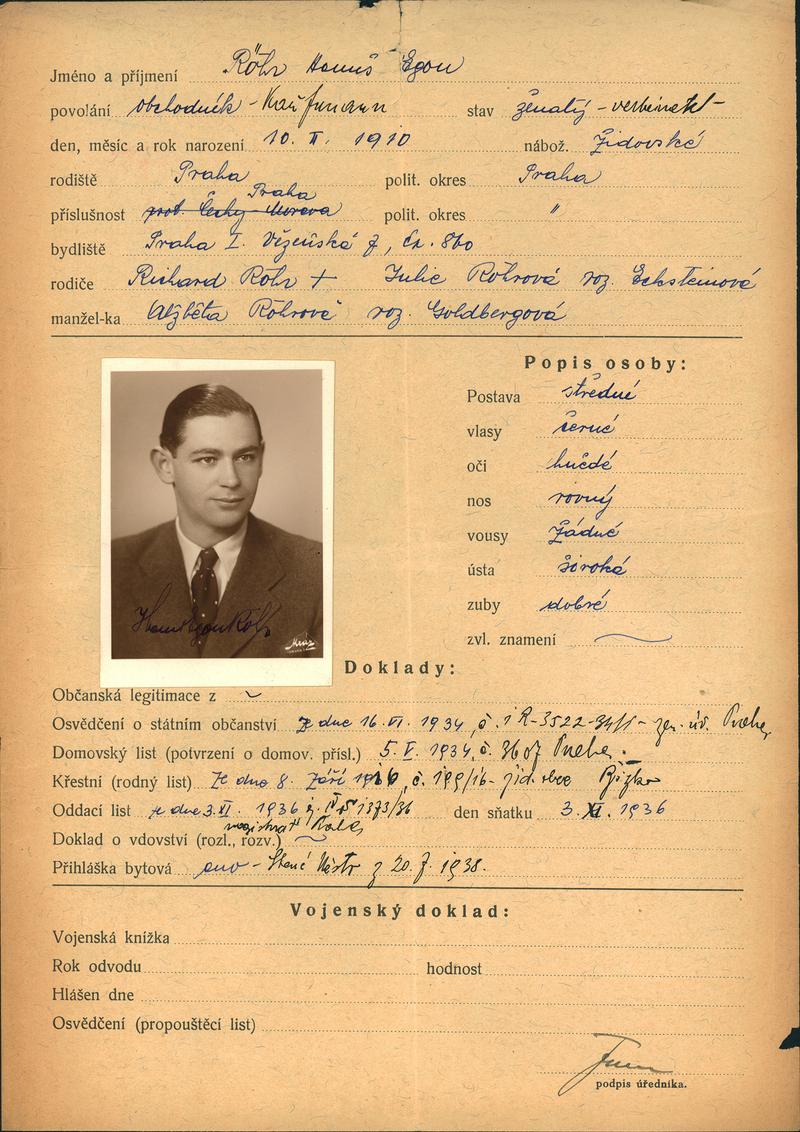 Jméno a příjmení Röhr Hanuš Egon
povolání obchodník - Kaufmann stav ženatý - verheiratet -
den, měsíc a rok narození 10. II. 1910 nábož. židovské
rodiště Praha polit. okres Praha
Praha
příslušnost prot. Čechy-Morava polit. okres "
bydliště Praha I. Vězeňská 7, čp. 860
rodiče Richard Röhr + Julie Röhrová roz. Ecksteinová
manžel-ka Alžběta Röhrová roz. Goldbergová
Popis osoby:
Postava středné
vlasy černé
oči hnědé
nos rovný
vousy žádné
ústa široká
zuby dobré
zvl. znamení
Hanuš Egon Röhr
Doklady:
Občanská legitimace z
Osvědčení o státním občanství ze dne 16. VI. 1934, č. R-3522-34/1 - zem. úř. Praha
Domovský list (potvrzení o domov. přísl.) 5. V. 1934, č. Praha.
Křestní (rodný list) Ze dne 8. září č. žid. obec
Oddací list ze dne 3. XI. 1936 č. 1373/36 den sňatku 3. XI. 1936
magistrát
Doklad o vdovství (rozl., rozv.)
Přihláška bytová ano - Staré Město z 20. 7. 1938.
Vojenský doklad:
Vojenská knížka
Rok odvodu hodnost
Hlášen dne
Osvědčení (propouštěcí list)
podpis úředníka.